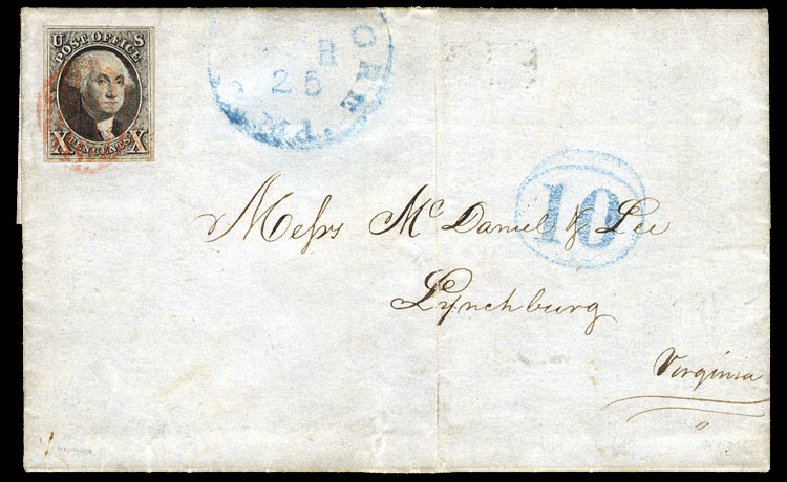 U S
POST OFFICE
X TEN CENTS X
ORE
R
25
Md.
10
Messrs McDaniel & Lee
Lynchburg
Virginia